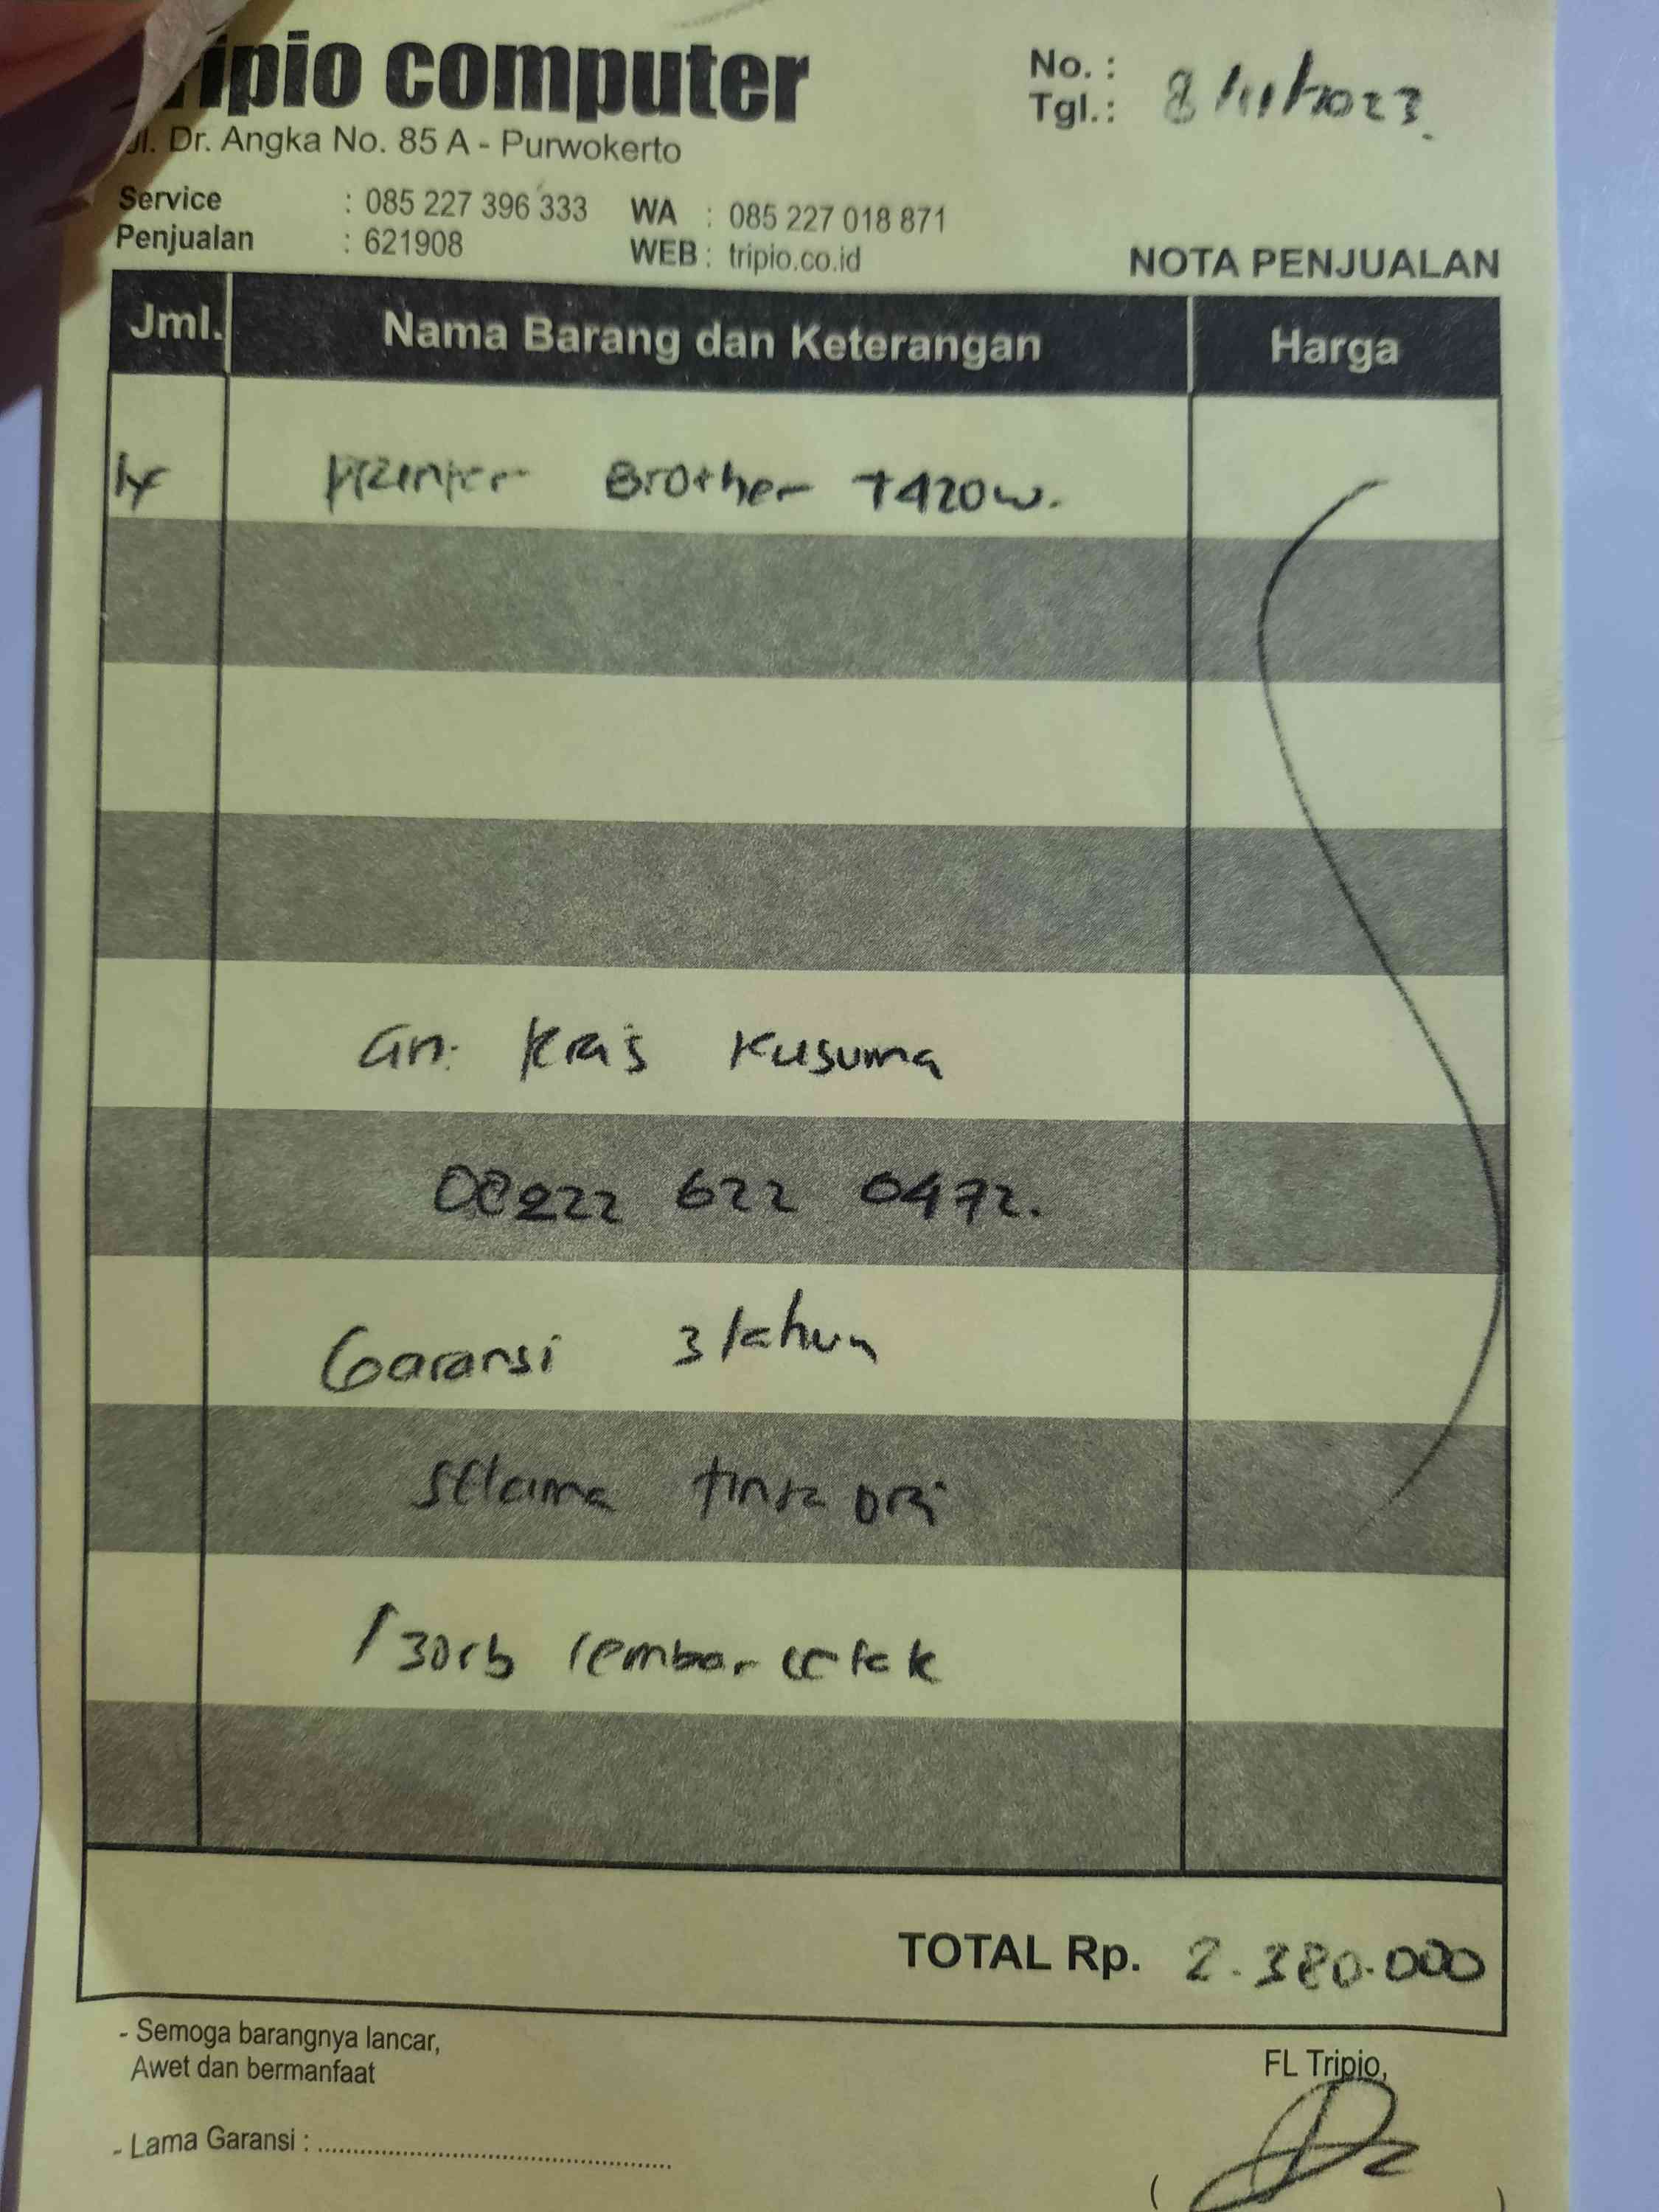 tripio computer
Jl. Dr. Angka No. 85 A - Purwokerto
No. :
Tgl.: 8/11/2023.
Service : 085 227 396 333 WA : 085 227 018 871
Penjualan : 621908 WEB : tripio.co.id
NOTA PENJUALAN
Jml. Nama Barang dan Keterangan Harga
1x Printer Brother T420w.
an. Kras Kusuma
08222 622 0472.
Garansi 3 tahun
selama tinta ori
/30rb lembar cetak
TOTAL Rp. 2.380.000
- Semoga barangnya lancar,
Awet dan bermanfaat
FL Tripio,
- Lama Garansi : ..........
( )